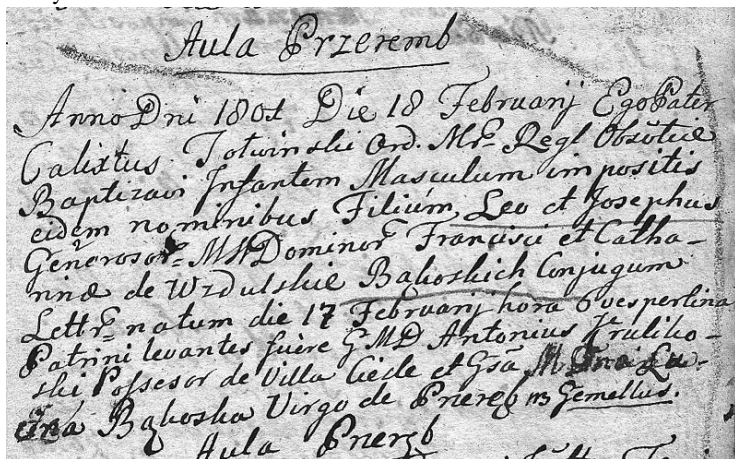 Aula Przeremb
Anno Dni 1801 Die 18 Februarij Ego Pater
Calixtus Totwinski Ord. Mr. Regl Obsůtiæ
Baptizavi Infantem Masculum impositis
eidem nominibus Filium Leo et Josephus
Generosor: MM Dominor Francisci et Catha-
rinæ de Wzdulskie Bąkoskich Conjugum
Lettr: natum die 17 Februarij hora 6 vespertina
Patrini levantes fuere GMD Antonius Kruliko-
ski Possesor de Villa et Gsa M Lu-
Bąkoska Virgo de Przeręb Gemellus.
Aula Przerąb